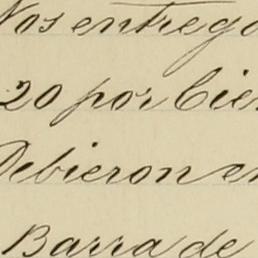 Nos entrego
20 por Cien
Debieron en
Barra de